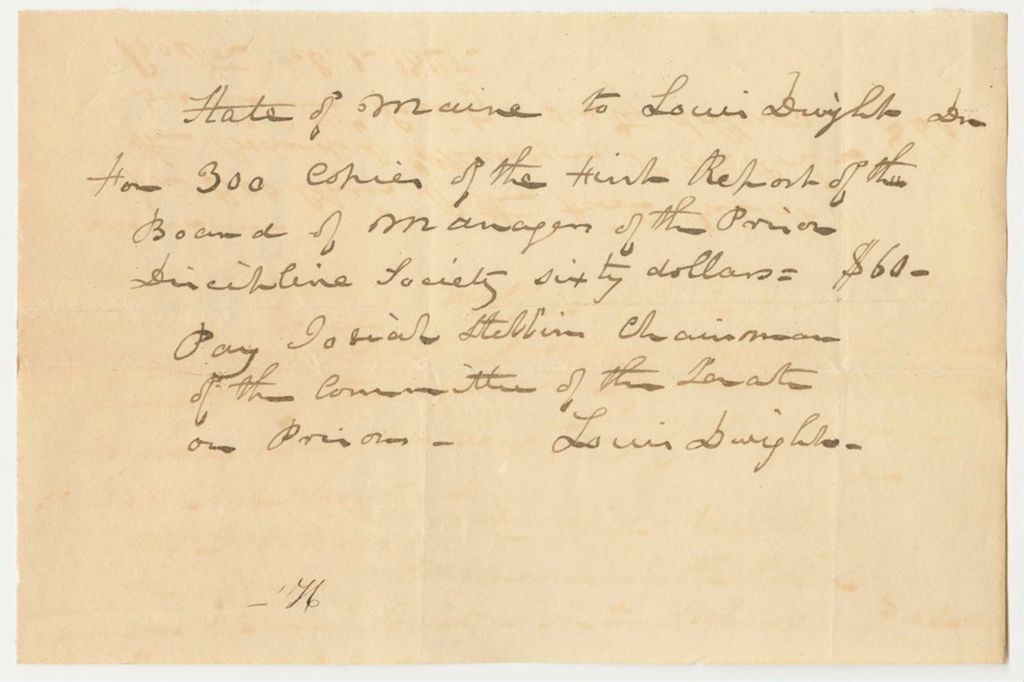 State of Maine to Louis Dwight Dr
For 300 Copies of the First Report of the
Board of Managers of the Prison
Discipline Society sixty dollars = $60 -
Pay Josiah Stebbins Chairman
of the Committee of the Senate
on Prisons - Louis Dwight -